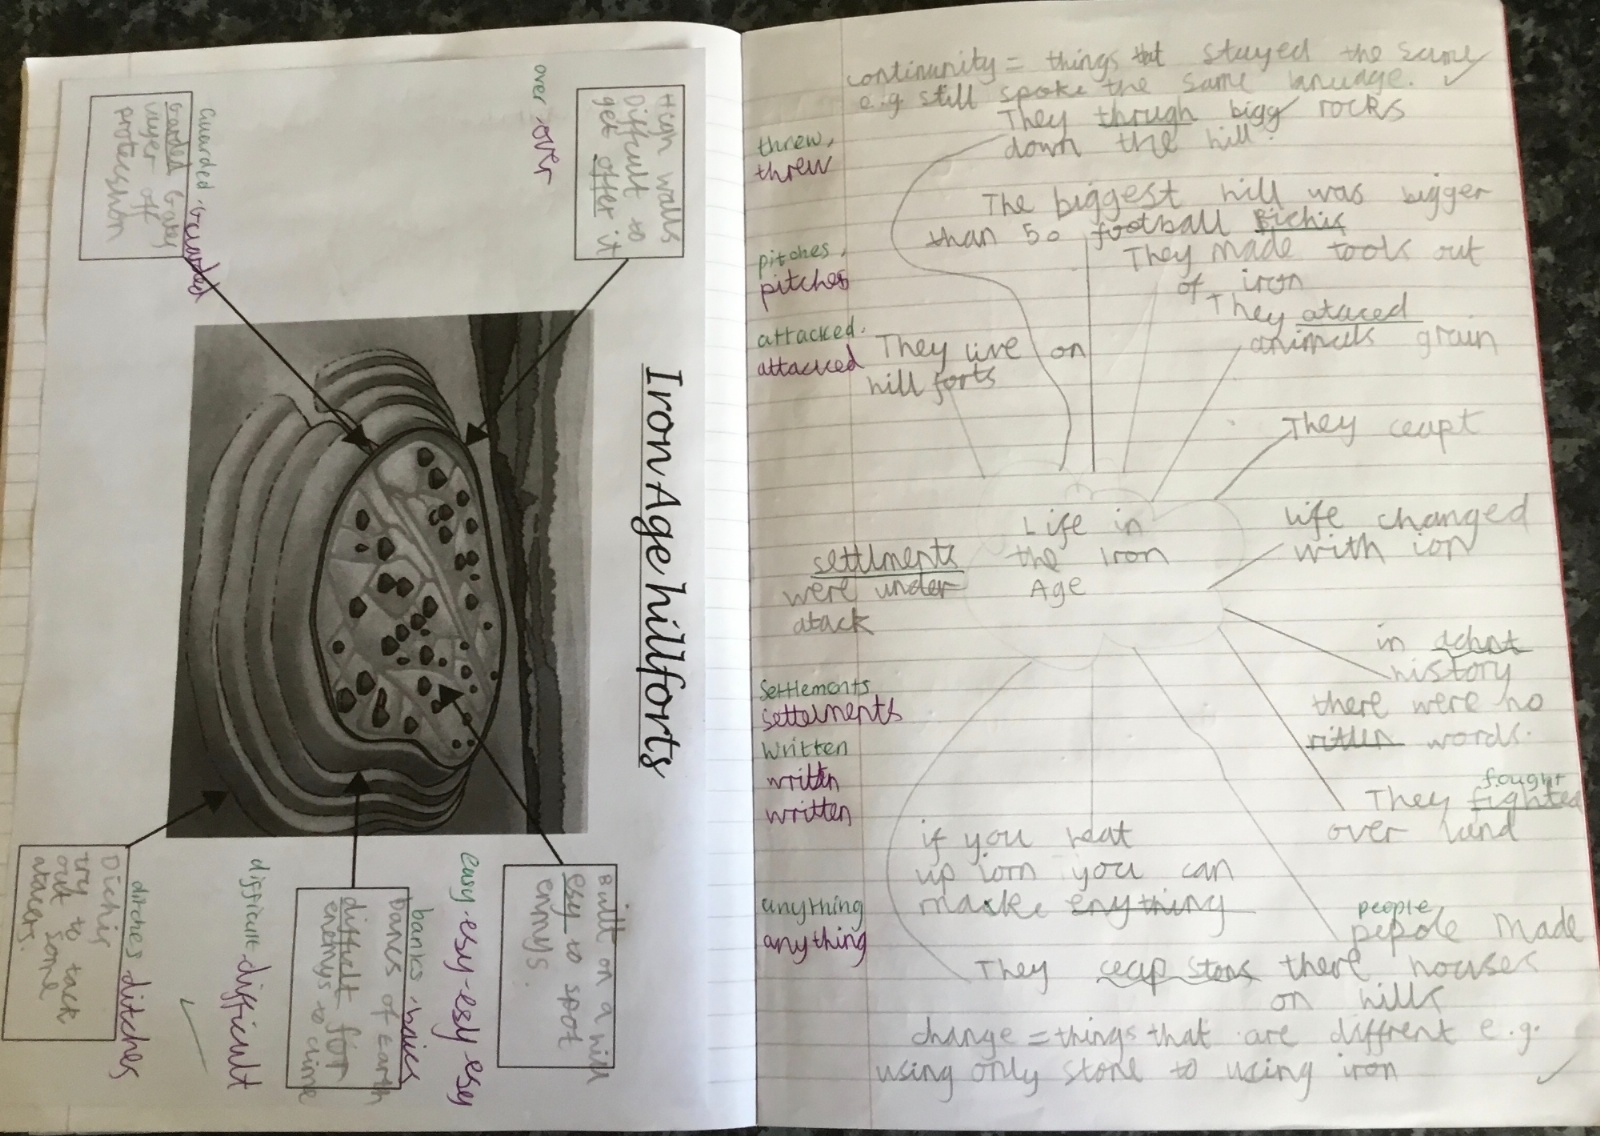 Iron Age hillforts
High walls
Difficult to
get offer it
over-over
guarded-guarded
Garded Gates
layer off
proteshon
Built on a hill
esy to spot
ennys.
easy-esy-esy-esy
banks-banks
Dancs of Earth
difficelt for
enemys to clime
difficult-difficult
ditches-ditches
Dichis
try to tack
out some
atacers.
continunity = things that stayed the same
e.g. still spoke the same langudge.
They through bigg rocks
down the hill.
threw,
threw
The biggest hill was bigger
than 50 football
pitches,
pitches
They made tools out
of iron
They ataced
animals grain
attacked.
attacked
They live on
hill forts
They ceapt
Life in
the Iron
Age
life changed
with ion
settlments
were under
atack
in
history
there were no
ritten words.
settlements
settelments
written
written
written
fought
They fighted
over land
if you heat
up iorn you can
make enything
anything
anything
people
pepole made
They ceap stons there houses
on hills
change = things that are diffrent e.g.
using only stone to using iron